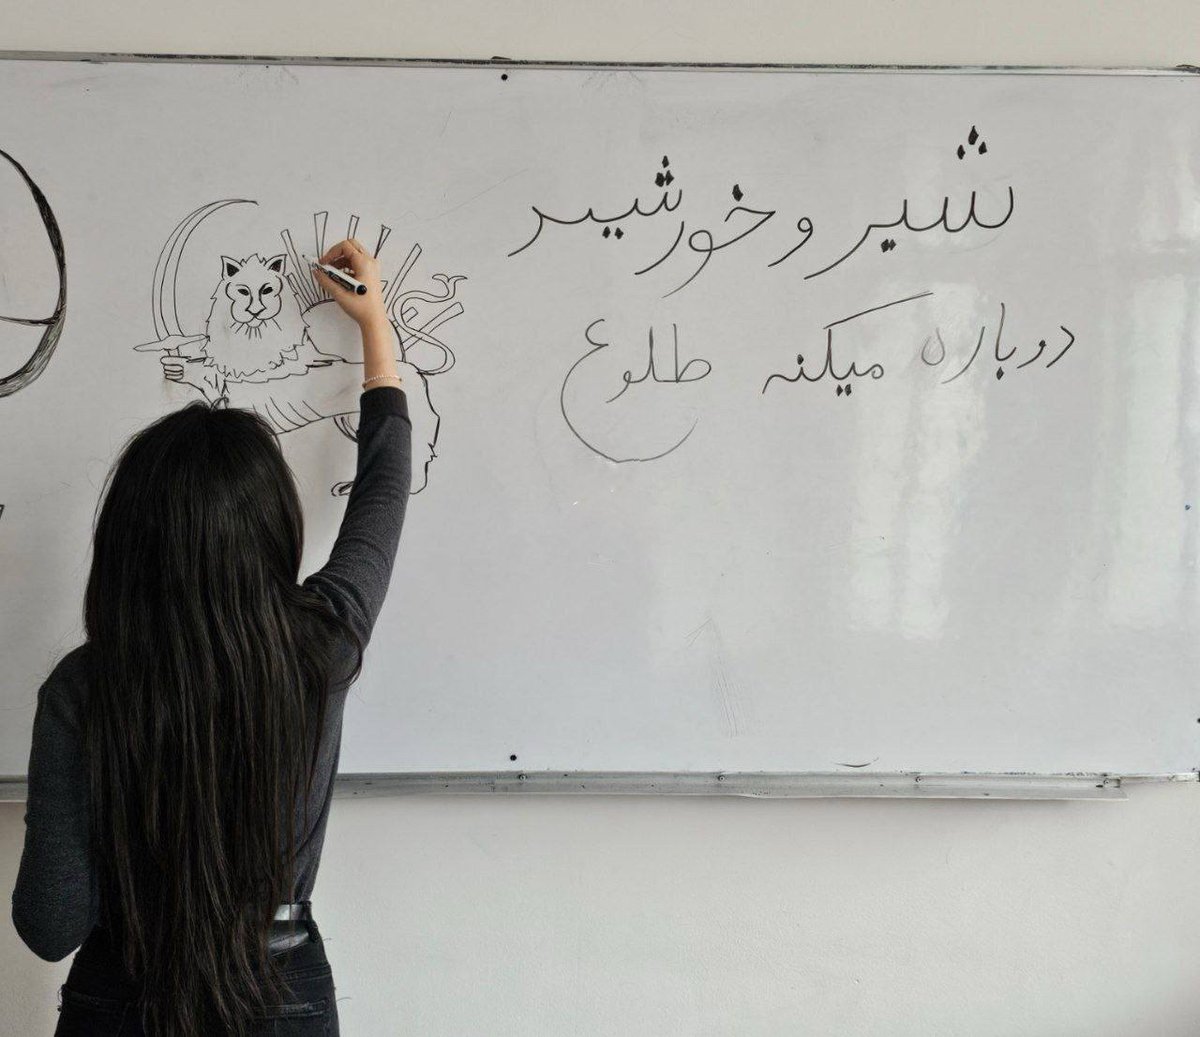 شیر و خورشید
دوباره میکنه طلوع